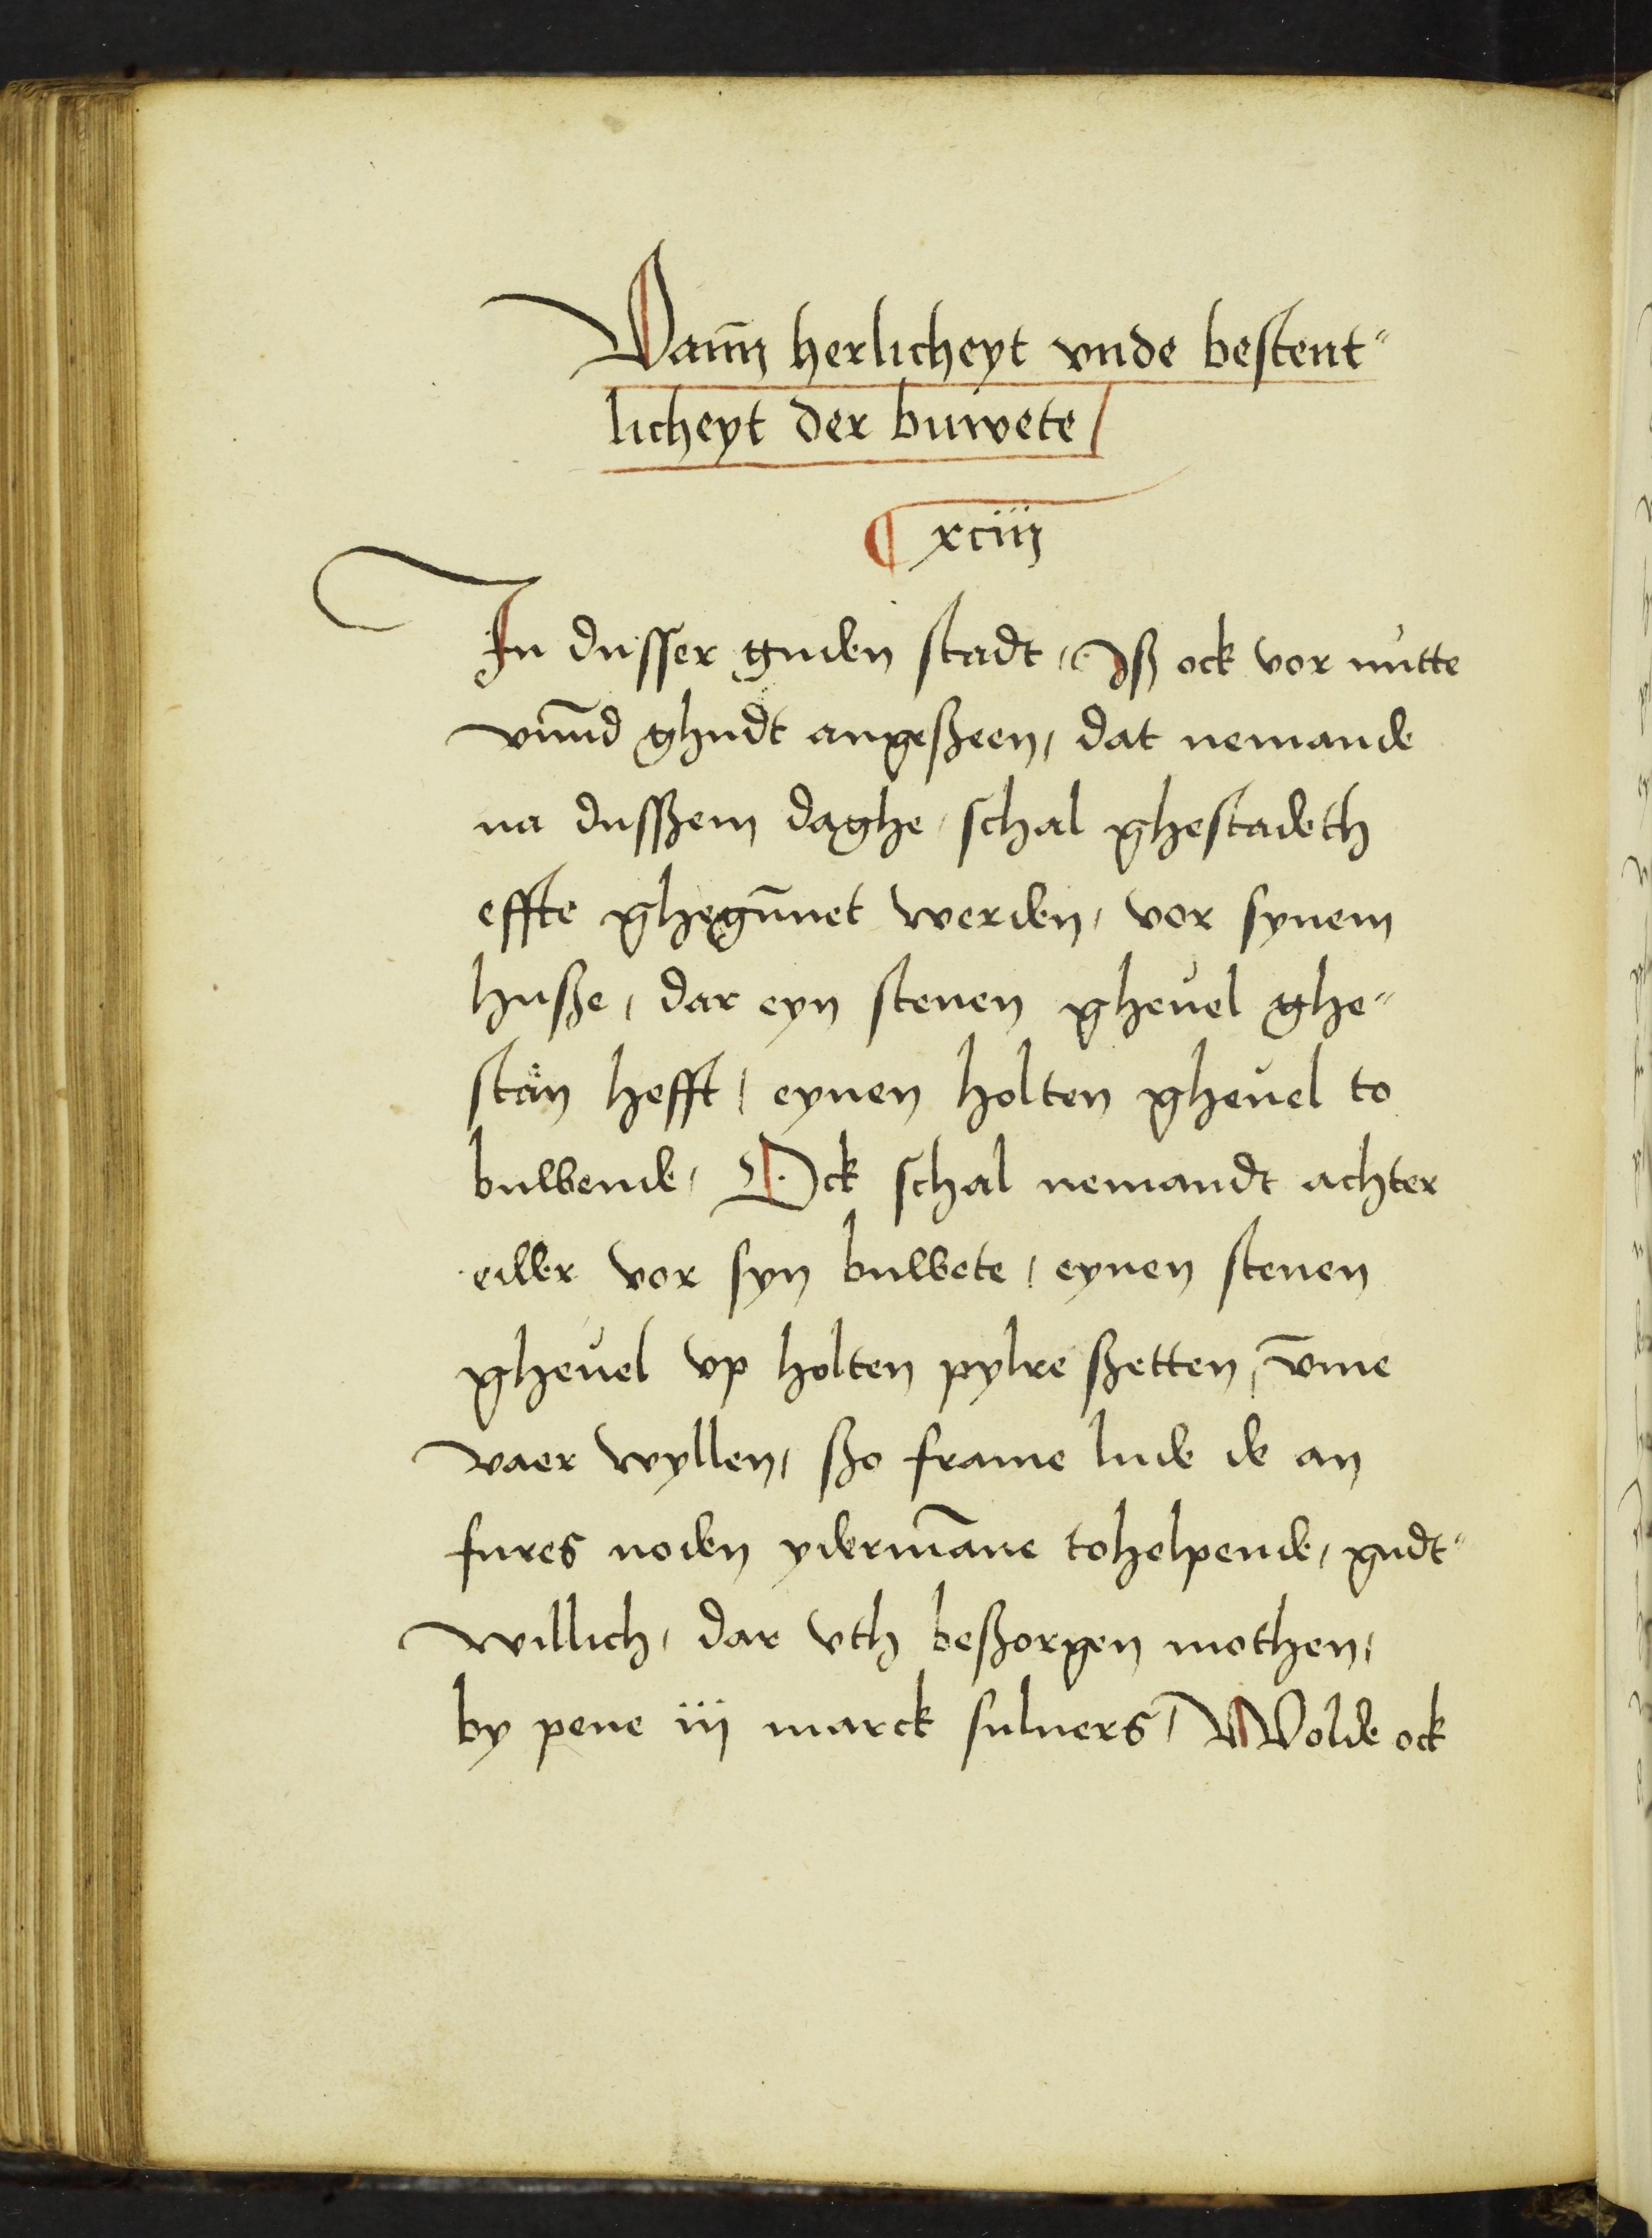 Vann̄ herlicheyt vnde bestent⸗
licheyt der buwete/
¶ xciiij
In dusser guden stadt / Iß ock vor nutte
vnnd̄ ghudt angeßeen / dat nemande
na dusßem daghe / schal ghestadeth
effte gheghūnet werden / vor synem
huße / dar eyn stenen gheuel ghe⸗
stan hefft / eynen holten gheuel to
buwende / Ock schal nemandt achter
edder vor syn buwete / eynen stenen
gheuel vp holten pylre ßetten / vm̄e
vaer wyllen / ßo frame lude de an
fures noden ydermāne tohelpende / gudt⸗
willich / dar vth beßorgen mothen /
by pene iij marck suluers / Wolde ock